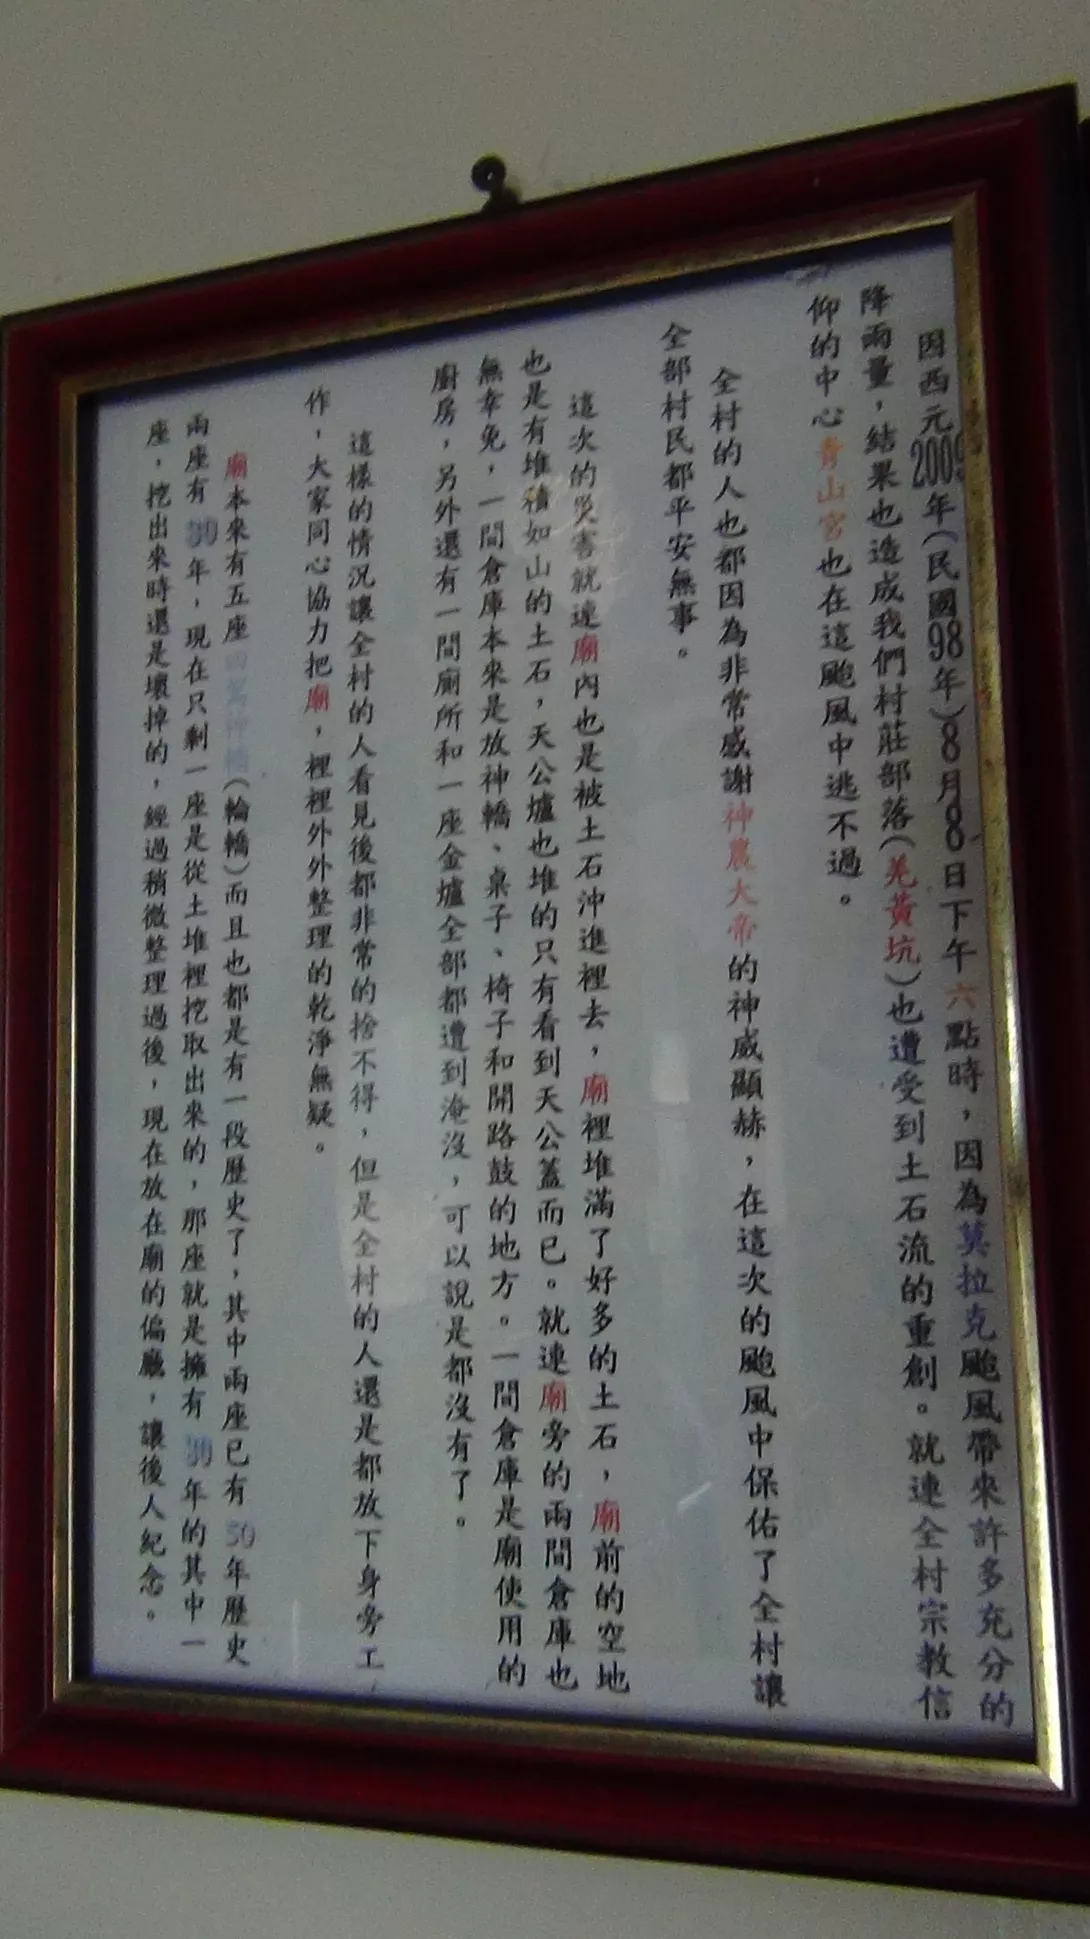 因西元2009年(民國98年)8月8日下午六點時，因為莫拉克颱風帶來許多充分的
降雨量，結果也造成我們村莊部落(羌黃坑)也遭受到土石流的重創。就連全村宗教信
仰的中心青山宮也在這颱風中逃不過。
全村的人也都因為非常感謝神農大帝的神威顯赫，在這次的颱風中保佑了全村讓
全部村民都平安無事。
這次的災害就連廟內也是被土石沖進裡去，廟裡堆滿了好多的土石，廟前的空地
也是有堆積如山的土石，天公爐也堆的只有看到天公蓋而已。就連廟旁的兩間倉庫也
無幸免，一間倉庫本來是放神轎、桌子、椅子和開路鼓的地方。一間倉庫是廟使用的
廚房，另外還有一間廁所和一座金爐全部都遭到淹沒，可以說是都沒有了。
這樣的情況讓全村的人看見後都非常的捨不得，但是全村的人還是都放下身旁工
作，大家同心協力把廟，裡裡外外整理的乾淨無疑。
廟本來有五座四駕神轎(輪轎)而且也都是有一段歷史了，其中兩座已有50年歷史
兩座有30年，現在只剩一座是從土堆裡挖取出來的，那座就是擁有30年的其中一
座，挖出來時還是壞掉的，經過稍微整理過後，現在放在廟的偏廳，讓後人紀念。